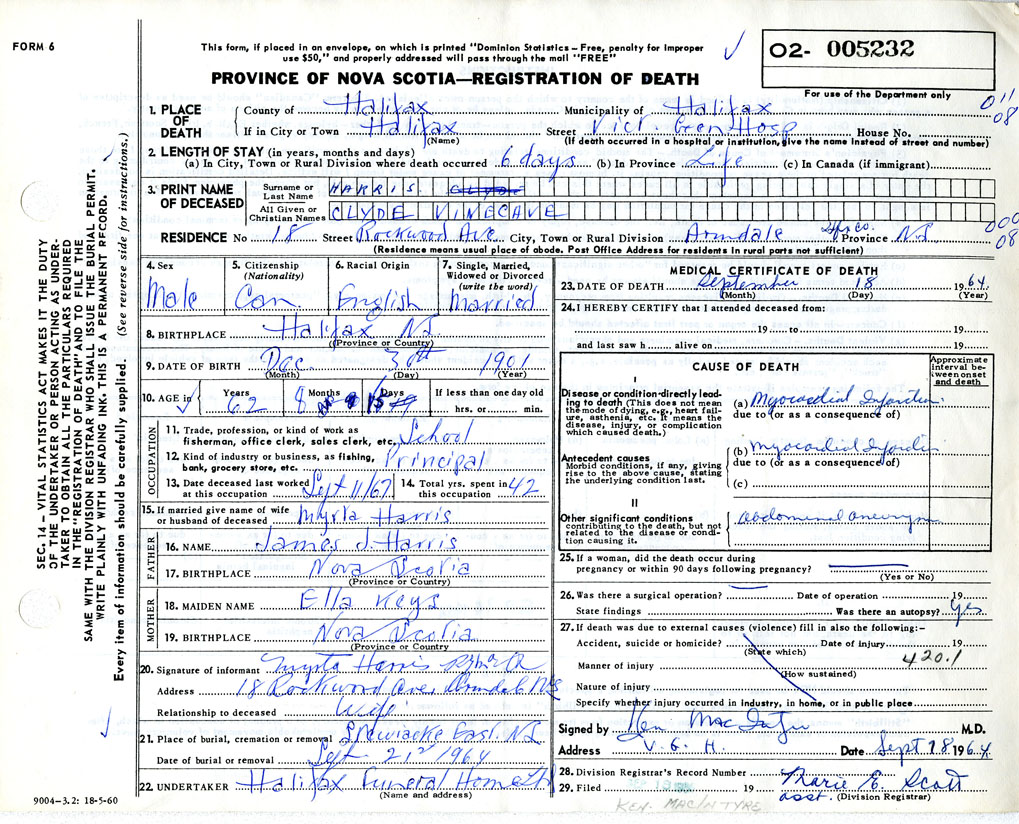 FORM 6
This form, if placed in an envelope, on which is printed "Dominion Statistics – Free, penalty for improper
use $50," and properly addressed will pass through the mail "FREE"
O2- 005232
For use of the Department only
PROVINCE OF NOVA SCOTIA—REGISTRATION OF DEATH
011
08
1. PLACE OF DEATH
County of Halifax Municipality of Halifax
If in City or Town Halifax Street Vict. Gen Hosp House No.
(Name) (If death occurred in a hospital or institution, give the name instead of street and number)
2. LENGTH OF STAY (in years, months and days)
(a) In City, Town or Rural Division where death occurred 6 days (b) In Province Life (c) In Canada (if immigrant)
3. PRINT NAME OF DECEASED
Surname or Last Name HARRIS CLYDE
All Given or Christian Names CLYDE VINECAVE
RESIDENCE No 18 Street Rockwood Ave. City, Town or Rural Division Armdale Hfx co. Province NS
000
08
(Residence means usual place of abode. Post Office Address for residents in rural parts not sufficient)
4. Sex Male
5. Citizenship (Nationality) Can.
6. Racial Origin English
7. Single, Married, Widowed or Divorced (write the word) Married
8. BIRTHPLACE Halifax NS
(Province or Country)
9. DATE OF BIRTH Dec. 30th 1901
(Month) (Day) (Year)
10. AGE in Years 62 Months 8 Days If less than one day old hrs. or min.
OCCUPATION
11. Trade, profession, or kind of work as fisherman, office clerk, sales clerk, etc. School
12. Kind of industry or business, as fishing, bank, grocery store, etc. Principal
13. Date deceased last worked at this occupation Sept 11/67
14. Total yrs. spent in this occupation 42
15. If married give name of wife or husband of deceased Myrta Harris
FATHER
16. NAME James J. Harris
17. BIRTHPLACE Nova Scotia
(Province or Country)
MOTHER
18. MAIDEN NAME Ella Keys
19. BIRTHPLACE Nova Scotia
(Province or Country
20. Signature of informant Myrta Harris
Address 18 Rockwood Ave, Armdale NS
Relationship to deceased Wife
21. Place of burial, cremation or removal Stewiacke East. NS
Date of burial or removal Sept 21st 1964
22. UNDERTAKER Halifax Funeral Home
(Name and address)
9004-3.2: 18-5-60
MEDICAL CERTIFICATE OF DEATH
23. DATE OF DEATH September 18 1964
(Month) (Day) (Year)
24. I HEREBY CERTIFY that I attended deceased from:
19 to 19
and last saw h alive on 19
CAUSE OF DEATH
Approximate interval between onset and death
I
Disease or condition directly leading to death (This does not mean the mode of dying, e.g., heart failure, asthenia, etc. It means the disease, injury, or complication which caused death.)
(a) Myocardial Infarction
due to (or as a consequence of)
Antecedent causes
Morbid conditions, if any, giving rise to the above cause, stating the underlying condition last.
(b) Myocardial Infarction
due to (or as a consequence of)
(c)
II
Other significant conditions
contributing to the death, but not related to the disease or condition causing it.
abdominal aneurysm
25. If a woman, did the death occur during
pregnancy or within 90 days following pregnancy?
(Yes or No)
26. Was there a surgical operation? Date of operation 19
State findings Was there an autopsy? Yes
27. If death was due to external causes (violence) fill in also the following:–
Accident, suicide or homicide? Date of injury 19
(State which)
420.1
Manner of injury
(How sustained)
Nature of injury
Specify whether injury occurred in industry, in home, or in public place
Signed by Ken MacIntyre M.D.
Address V. G. H. Date Sept 18 1964
28. Division Registrar's Record Number
29. Filed 19 Marie E. Scott
asst. (Division Registrar)
KEN. MACINTYRE
SEC. 14 – VITAL STATISTICS ACT MAKES IT THE DUTY
OF THE UNDERTAKER OR PERSON ACTING AS UNDER-
TAKER TO OBTAIN ALL THE PARTICULARS REQUIRED
IN THE "REGISTRATION OF DEATH" AND TO FILE THE
SAME WITH THE DIVISION REGISTRAR WHO SHALL ISSUE THE BURIAL PERMIT.
WRITE PLAINLY WITH UNFADING INK. THIS IS A PERMANENT RECORD.
Every item of information should be carefully supplied. (See reverse side for instructions.)